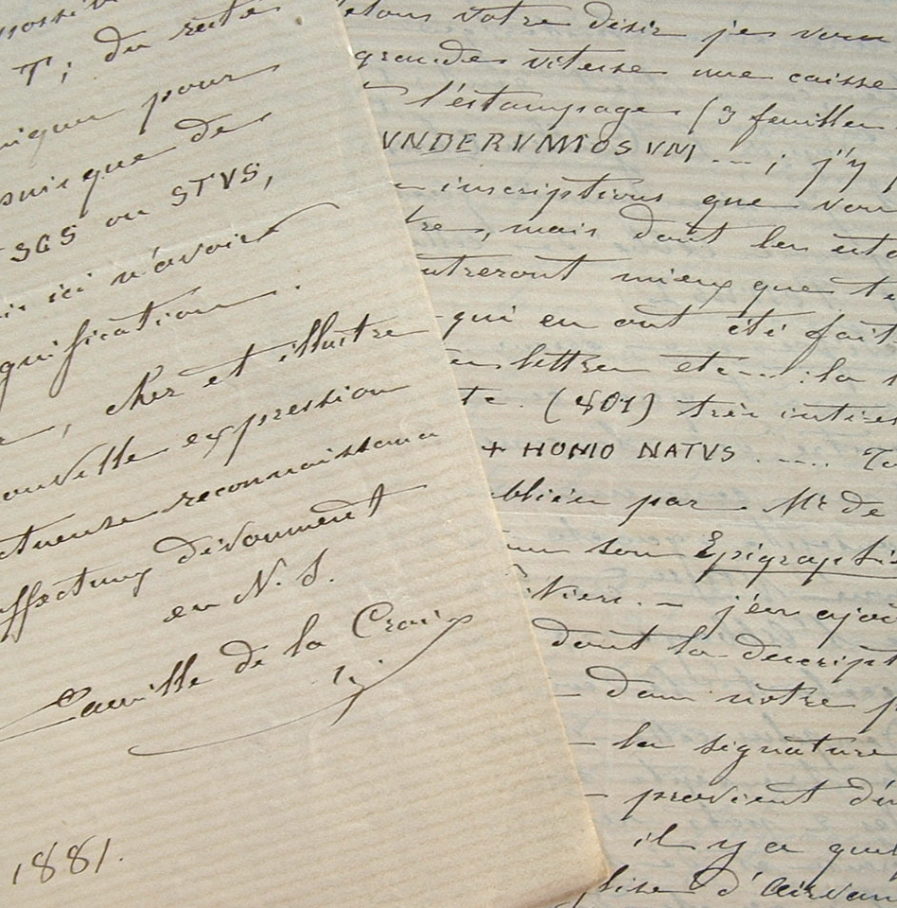 T; du reste
pour
que des
SGS ou STVS,
ici n'avoir
gnification.
, cher et illustre
ouvelle expression
ctueuse reconnaissance
affectueux dévouement
en N. S.
Camille de la Croix
s.j.
1881.
votre désir je vous
grande vitesse une caisse
l'estampage (3 feuilles
VNDERVMIOSVM ...; j'y
inscriptions que vous
tre, mais dont les
ntreront mieux que
qui en ont été fait
lettres etc... : la
te. (401) très
+ HONIO NATVS .....
bliées par Mr de
son Epigraphi
itiers. - j'en ajou
dont la descript
dans notre
la signature
provient d'
il y a quel
lise d'Airvau